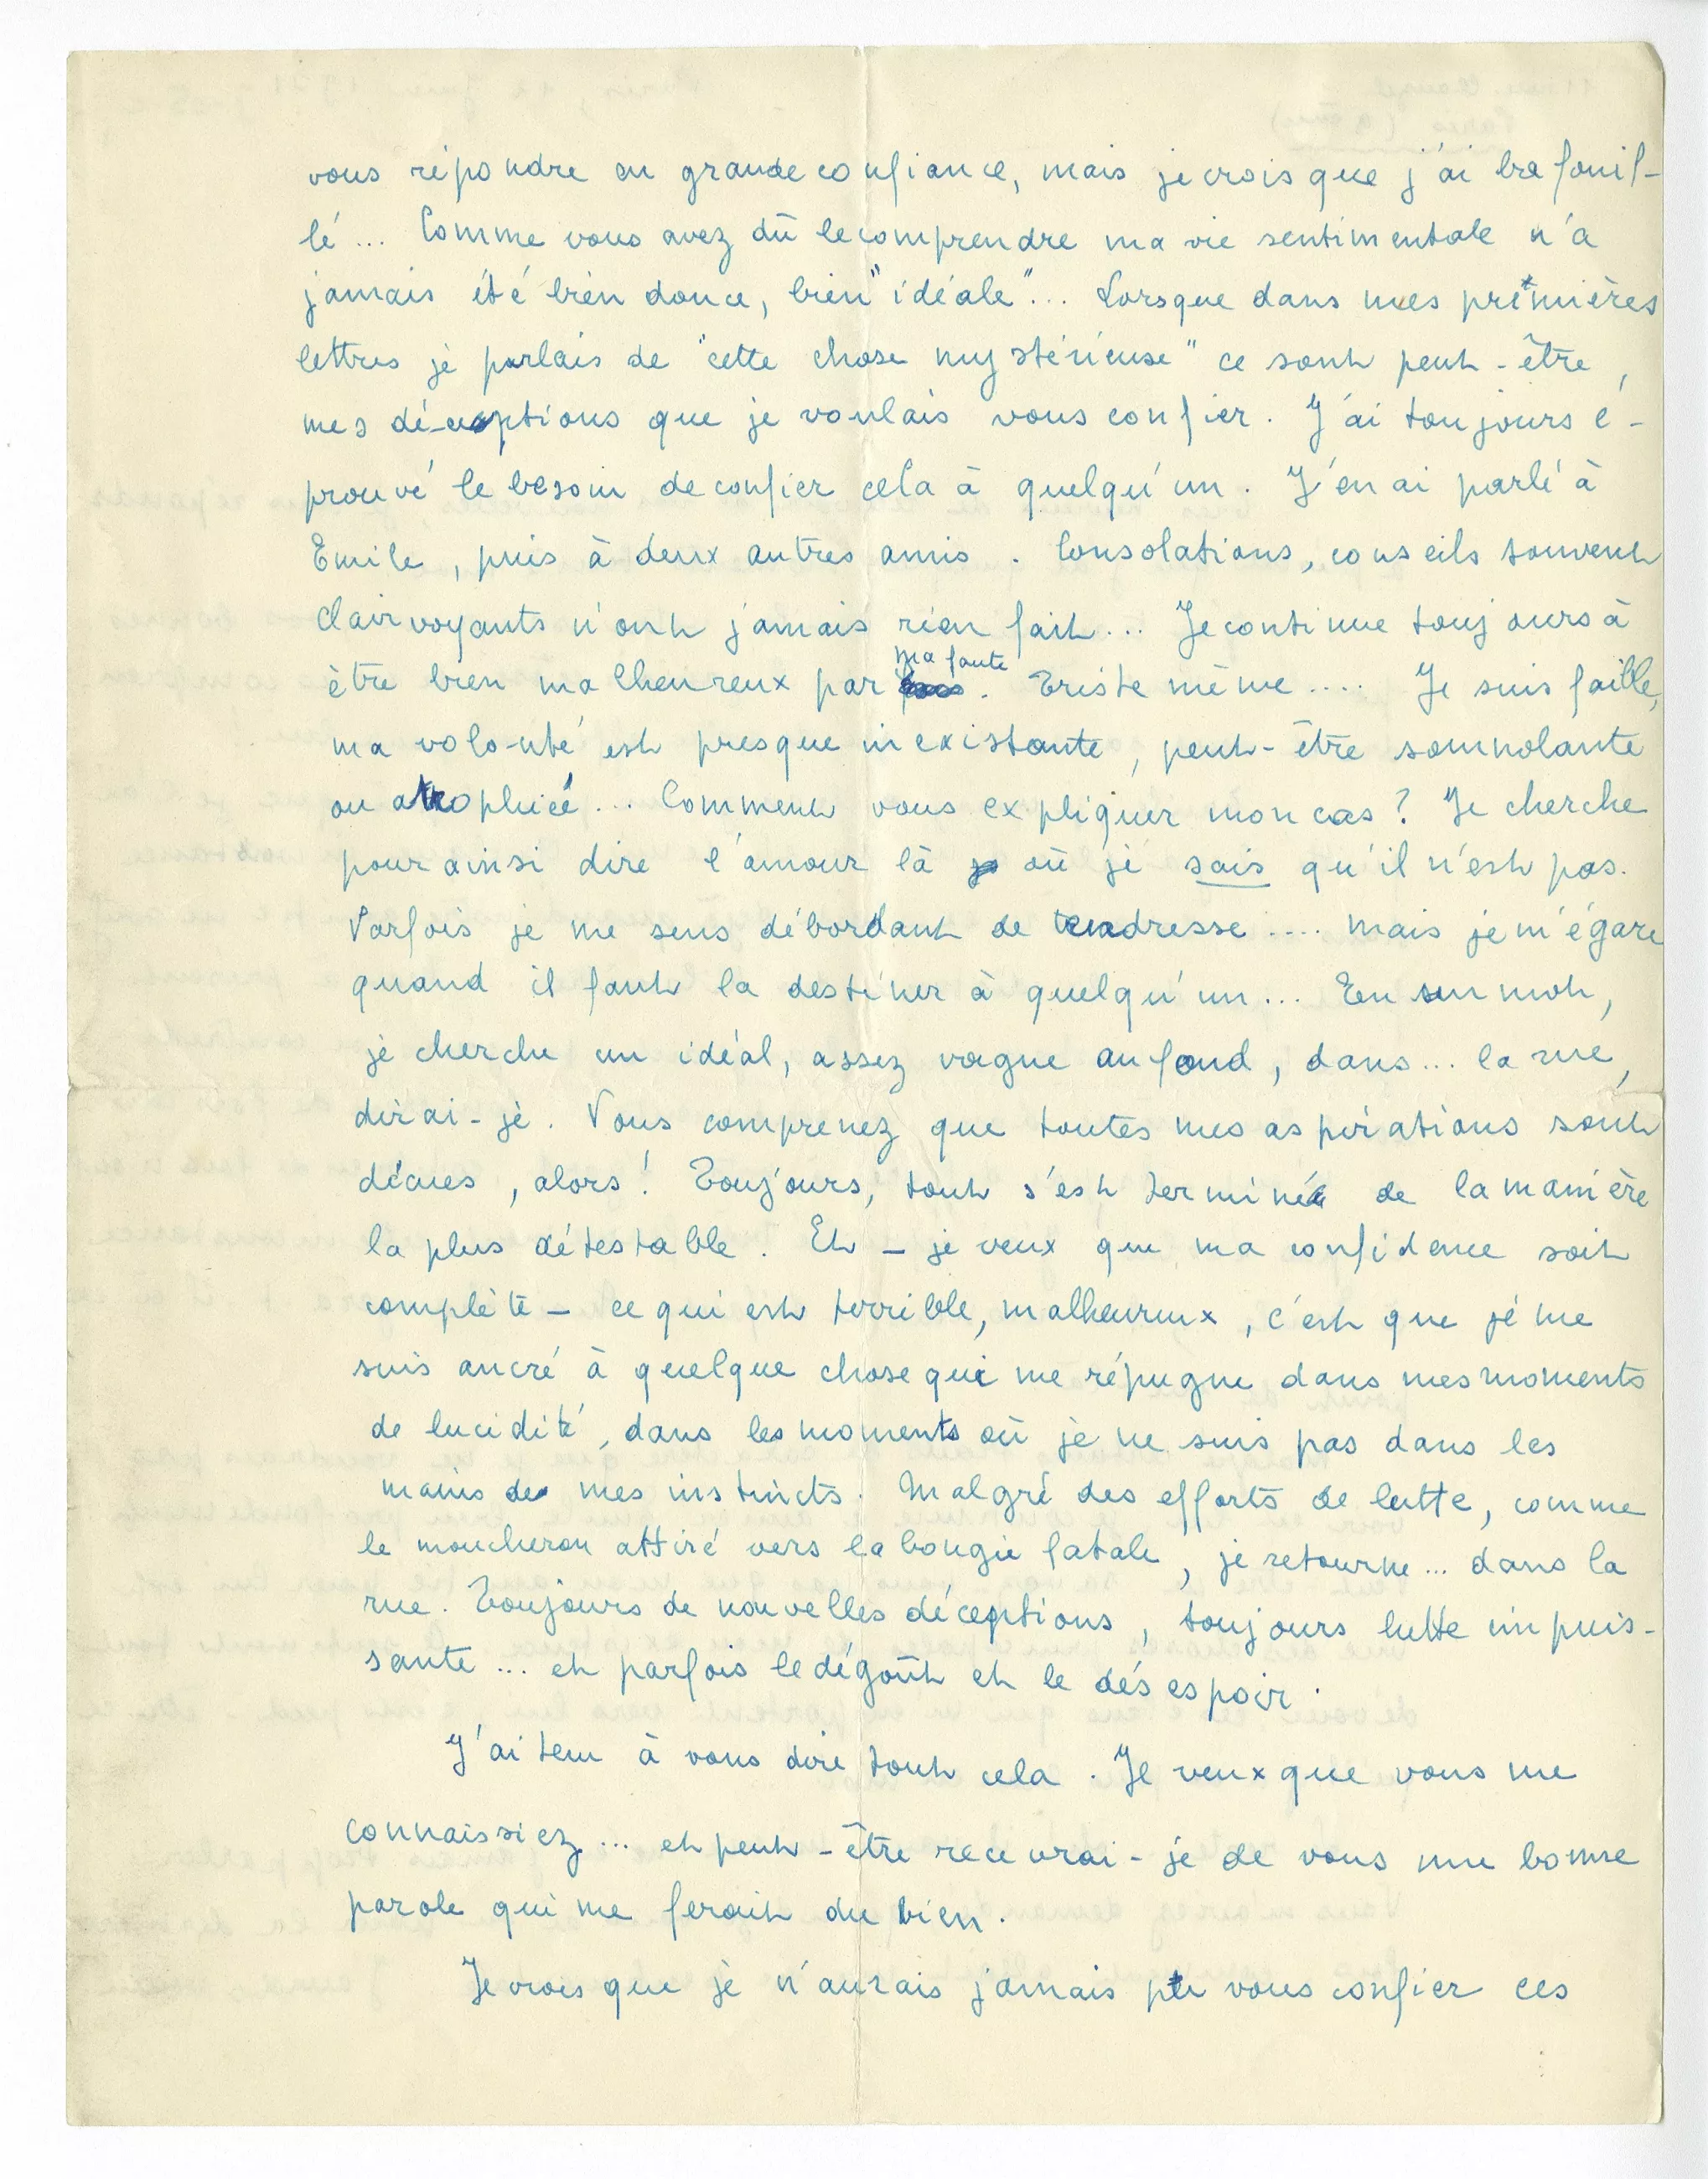 vous répondre en grande confiance, mais je crois que j'ai bafouil-
lé... Comme vous avez dû le comprendre ma vie sentimentale n'a
jamais été bien douce, bien "idéale"... Lorsque dans mes premières
lettres je parlais de "cette chose mystérieuse" ce sont peut-être,
mes déceptions que je voulais vous confier. J'ai toujours é-
prouvé le besoin de confier cela à quelqu'un. J'en ai parlé à
Emile, puis à deux autres amis. Consolations, conseils souvent
clairvoyants n'ont jamais rien fait... Je continue toujours à
être bien malheureux par ma faute. Triste même.... Je suis faible,
ma volonté est presque inexistante, peut-être somnolante
ou atrophiée... Comment vous expliquer mon cas? Je cherche
pour ainsi dire l'amour là où je sais qu'il n'est pas.
Parfois je me sens débordant de tendresse.... mais je m'égare
quand il faut la destiner à quelqu'un... En un mot,
je cherche un idéal, assez vague au fond, dans... la rue,
dirai-je. Vous comprenez que toutes mes aspirations sont
décues, alors! Toujours, tout s'est terminé de la manière
la plus détestable. Et - je veux que ma confidence soit
complète - ce qui est terrible, malheureux, c'est que je me
suis ancré à quelque chose qui me répugne dans mes moments
de lucidité, dans les moments où je ne suis pas dans les
mains de mes instincts. Malgré des efforts de lutte, comme
le moucheron attiré vers la bougie fatale, je retourne... dans la
rue. Toujours de nouvelles déceptions, toujours lutte impuis-
sante... et parfois le dégoût et le désespoir.
J'ai tenu à vous dire tout cela. Je veux que vous me
connaissiez... et peut-être recevrai-je de vous une bonne
parole qui me ferait du bien.
Je crois que je n'aurais jamais pu vous confier ces